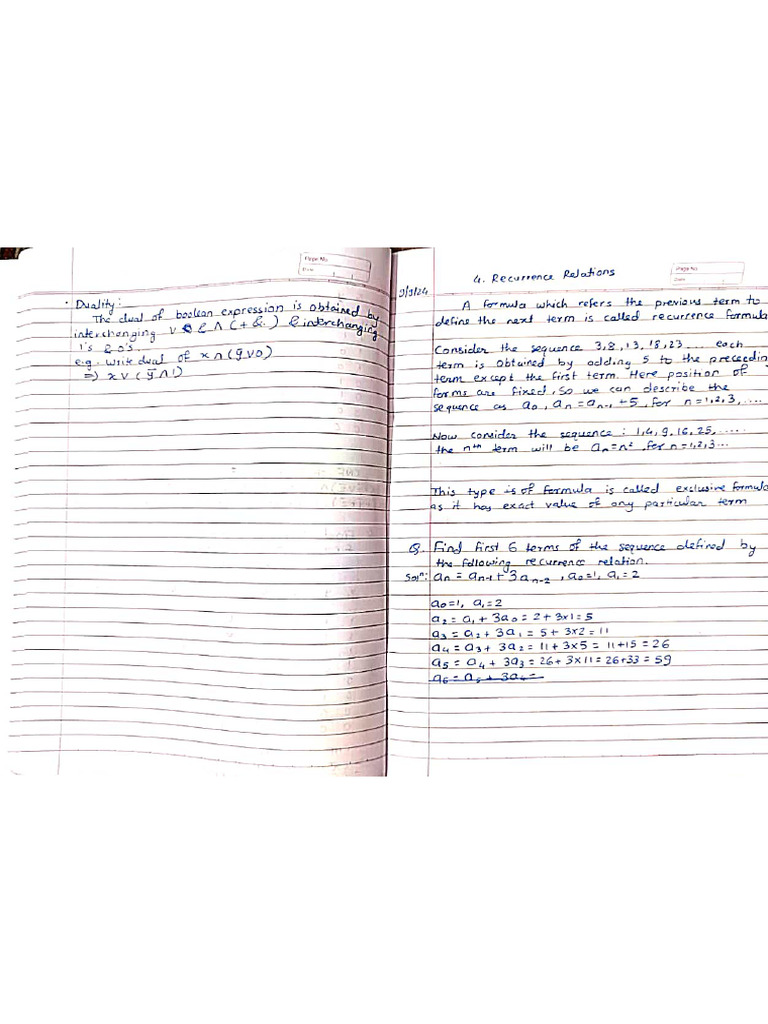 Page No.
Date
• Duality:
The dual of boolean expression is obtained by
interchanging ∨ & ∧ (+ & .) & interchanging
1's & 0's.
e.g. Write dual of x∧(ȳ∨0)
⇒ x∨(ȳ∧1)
Page No.
Date
4. Recurrence Relations
9/9/24
A formula which refers the previous term to
define the next term is called recurrence formula
Consider the sequence 3,8,13,18,23... each
term is obtained by adding 5 to the preceeding
term except the first term. Here position of
forms are fixed, So we can describe the
sequence as a₀, aₙ=aₙ₋₁+5, for n=1,2,3,....
Now consider the sequence : 1,4,9,16,25,.....
the nᵗʰ term will be aₙ=n², for n=1,2,3...
This type is of formula is called exclusive formula
as it has exact value of any particular term
Q. Find first 6 terms of the sequence defined by
the following recurrence relation.
Solⁿ: aₙ = aₙ₋₁ + 3aₙ₋₂, a₀=1, a₁=2
a₀=1, a₁=2
a₂ = a₁ + 3a₀ = 2 + 3×1 = 5
a₃ = a₂ + 3a₁ = 5 + 3×2 = 11
a₄ = a₃ + 3a₂ = 11 + 3×5 = 11+15 = 26
a₅ = a₄ + 3a₃ = 26 + 3×11 = 26+33 = 59
a₆ = a₅ + 3a₄ =